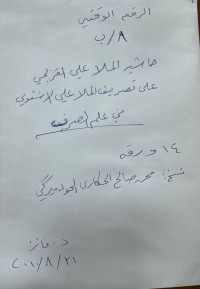 الرقم الوقفي
٨/ب
حاشية الملا علي القزلجي
على تصريف الملا علي الاشنوي
في علم الصرف
١٤ ورقة
نسخ: محمد صالح الحكاري
د. فائز
٢١/٨/٢٠١